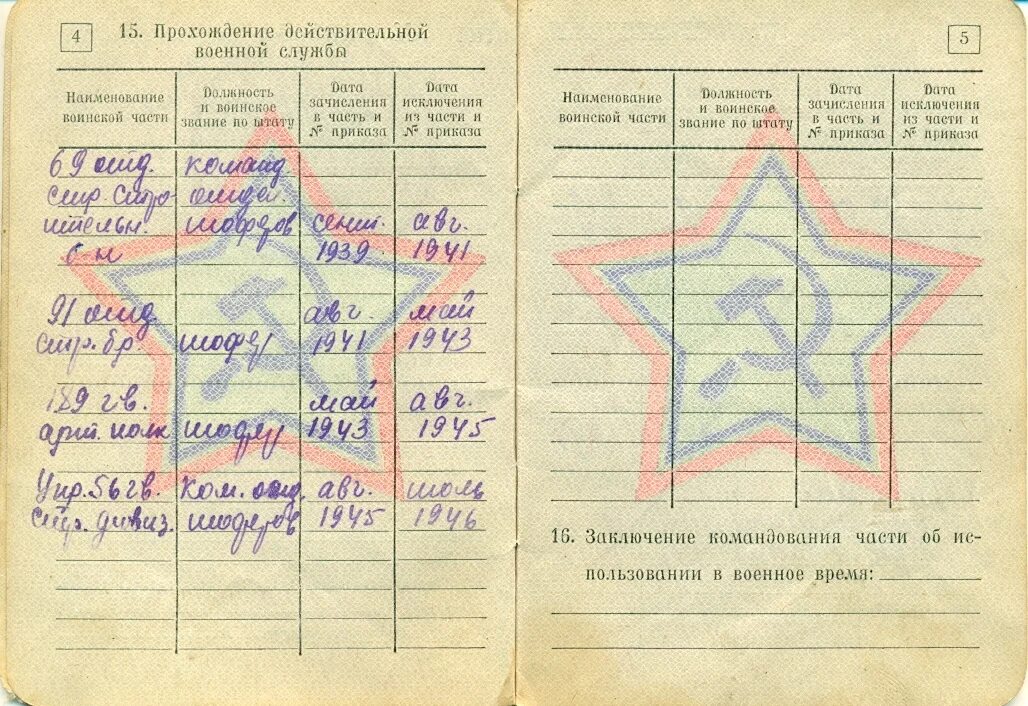 4
15. Прохождение действительной
военной службы
Наименование
воинской части
Должность
и воинское
звание по штату
Дата
зачисления
в часть и
№ приказа
Дата
исключения
из части и
№ приказа
69 отд. команд.
стр. Стро- отдел.
ительн. шоферов сент. авг.
б-н 1939 1941
91 отд. авг. май
стр. бр. шофер 1941 1943
189 гв. май авг.
арт. полк шофер 1943 1945
Упр. 56 гв. Ком. отд. авг. июль
стр. дивиз. шоферов 1945 1946
5
Наименование
воинской части
Должность
и воинское
звание по штату
Дата
зачисления
в часть и
№ приказа
Дата
исключения
из части и
№ приказа
16. Заключение командования части об ис-
пользовании в военное время: